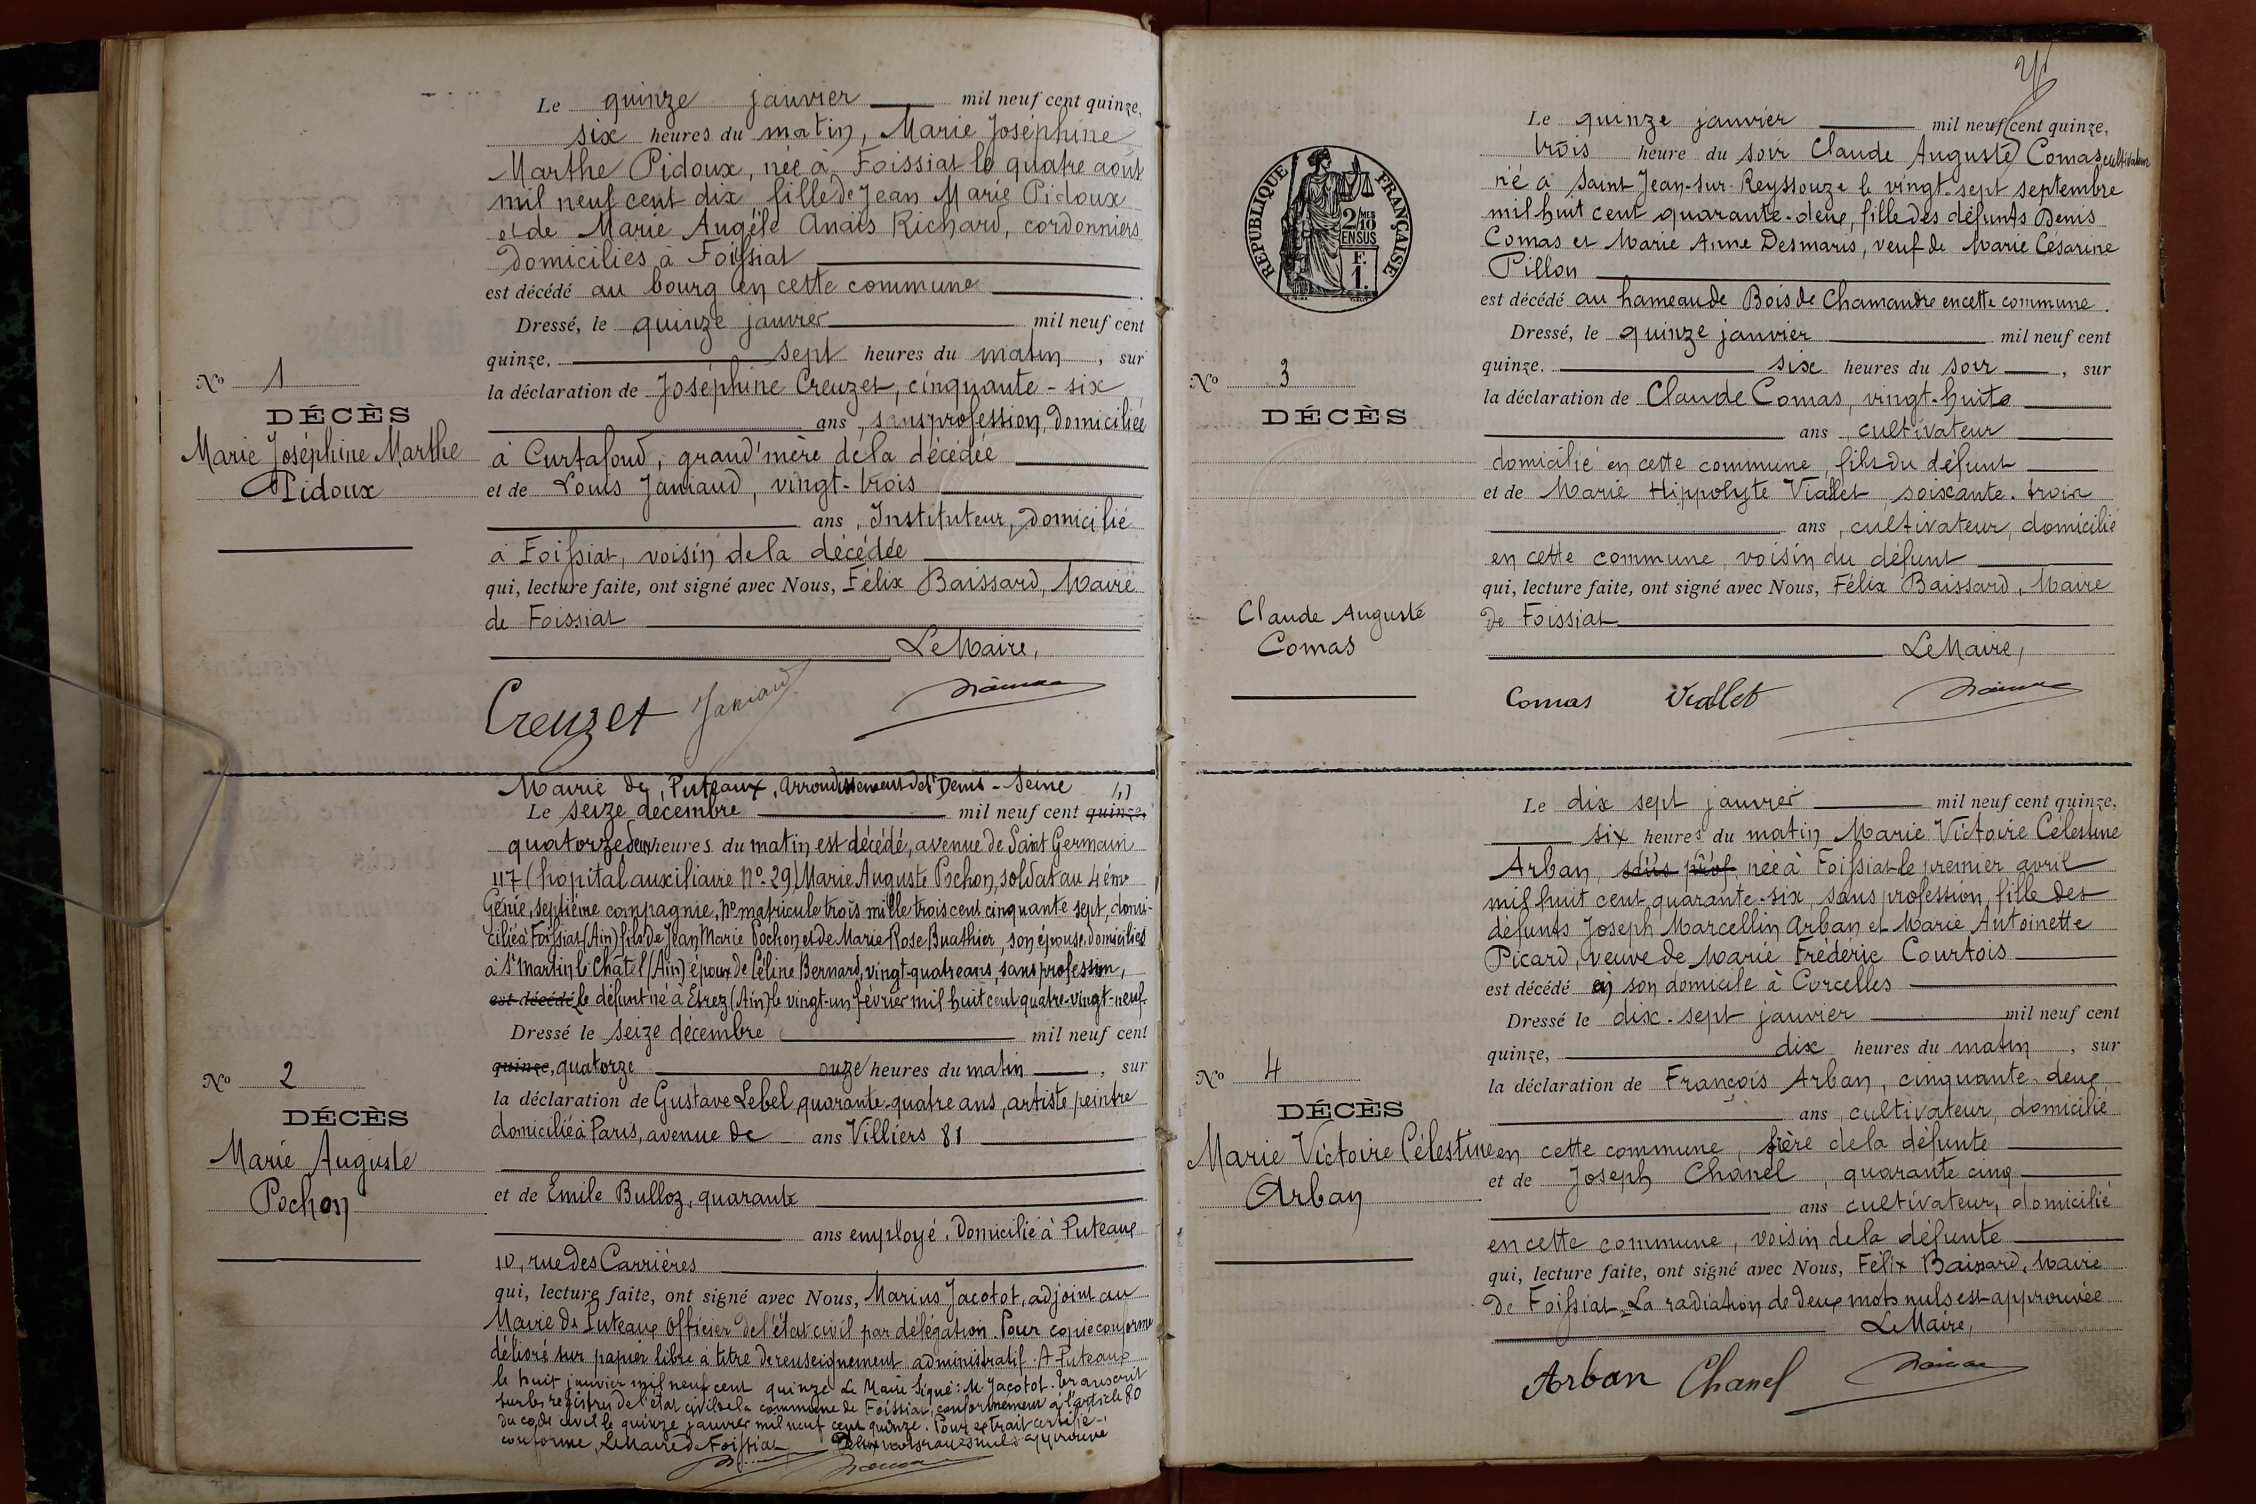 Le quinze janvier mil neuf cent quinze,
six heures du matin, Marie Joséphine
Marthe Pidoux, née à Foissiat le quatre août
mil neuf cent dix fille de Jean Marie Pidoux
et de Marie Angéle Anaïs Richard, cordonniers
domiciliés à Foissiat
est décédé au bourg en cette commune
Dressé, le quinze janvier mil neuf cent
quinze, sept heures du matin, sur
la déclaration de Joséphine Creuzet, cinquante-six
ans, sans profession, domiciliée
à Curtafond, grand'mère de la décédée
et de Louis Janiaud, vingt-trois
ans, Instituteur, domicilié
à Foissiat, voisin de la décédée
qui, lecture faite, ont signé avec Nous, Félix Baissard, Maire
de Foissiat
Le Maire,
Creuzet Janiaud
No 1
DÉCÈS
Marie Joséphine Marthe
Pidoux
Mairie de Puteaux, Arrondissement de St Denis - Seine
Le seize décembre mil neuf cent quinze,
quatorze deux heures du matin est décédé, avenue de Saint Germain
117 (hopital auxiliaire No. 29) Marie Auguste Pochon, soldat au 4ème
Génie, septième compagnie, No matricule trois mille trois cent cinquante sept, domi-
cilié à Foissiat (Ain) fils de Jean Marie Pochon et de Marie Rose Buathier, son épouse, domiciliés
à St Martin le Châtel (Ain) époux de Céline Bernard, vingt-quatre ans, sans profession,
est décédé le défunt né à Etrez (Ain) le vingt-un février mil huit cent quatre-vingt-neuf
Dressé le seize décembre mil neuf cent
quinze, quatorze onze heures du matin, sur
la déclaration de Gustave Lebel quarante-quatre ans, artiste peintre
domicilié à Paris, avenue de ans Villiers 81
et de Emile Bulloz, quarante
ans employé. Domicilié à Puteaux
10, rue des Carrières
qui, lecture faite, ont signé avec Nous, Marius Jacotot, adjoint au
Maire de Puteaux officier de l'état civil par délégation. Pour copie conforme
délivré sur papier libre à titre de renseignement administratif. A Puteaux
le huit janvier mil neuf cent quinze Le Maire Signé: M Jacotot. Transcrit
sur les registres de l'état civil de la commune de Foissiat, conformément à l'article 80
du code civil le quinze janvier mil neuf cent quinze. Pour extrait certifié
conforme, Le Maire de Foissiat Deux mots rayés nuls approuvé
No 2
DÉCÈS
Marie Auguste
Pochon
RÉPUBLIQUE FRANÇAISE
2/10
EN SUS
F.
1.
Le quinze janvier mil neuf cent quinze,
trois heure du soir Claude Auguste Comas, cultivateur
né à Saint Jean-sur-Reyssouze le vingt-sept septembre
mil huit cent quarante-deux, fille des défunts Denis
Comas et Marie Anne Desmaris, veuf de Marie Césarine
Pillon
est décédé au hameau de Bois de Chamandre en cette commune.
Dressé, le quinze janvier mil neuf cent
quinze. six heures du soir, sur
la déclaration de Claude Comas, vingt-huit
ans, cultivateur
domicilié en cette commune, fils du défunt
et de Marie Hippolyte Viallet, soixante-trois
ans, cultivateur, domicilié
en cette commune, voisin du défunt
qui, lecture faite, ont signé avec Nous, Félix Baissard, Maire
de Foissiat
Le Maire,
Comas Viallet
No 3
DÉCÈS
Claude Auguste
Comas
Le dix sept janvier mil neuf cent quinze,
six heures du matin Marie Victoire Célestine
Arban, sans prof née à Foissiat le premier avril
mil huit cent quarante-six, sans profession, fille des
défunts Joseph Marcellin Arban et Marie Antoinette
Picard, veuve de Marie Frédéric Courtois
est décédé en son domicile à Corcelles
Dressé le dix-sept janvier mil neuf cent
quinze, dix heures du matin, sur
la déclaration de François Arban, cinquante-deux
ans, cultivateur, domicilié
en cette commune, frère de la défunte
et de Joseph Chanel, quarante cinq
ans cultivateur, domicilié
en cette commune, voisin de la défunte
qui, lecture faite, ont signé avec Nous, Félix Baissard, Maire
de Foissiat. La radiation de deux mots nuls est approuvée
Le Maire,
Arban Chanel
No 4
DÉCÈS
Marie Victoire Célestine
Arban